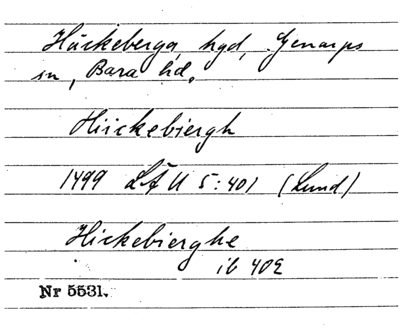 Häckeberga, hgd, Genarps
sn, Bara hd.
Hickebiergh
1499 LÄU 5:401 (Lund)
Hickebierghe
ib 402
Nr 5531.